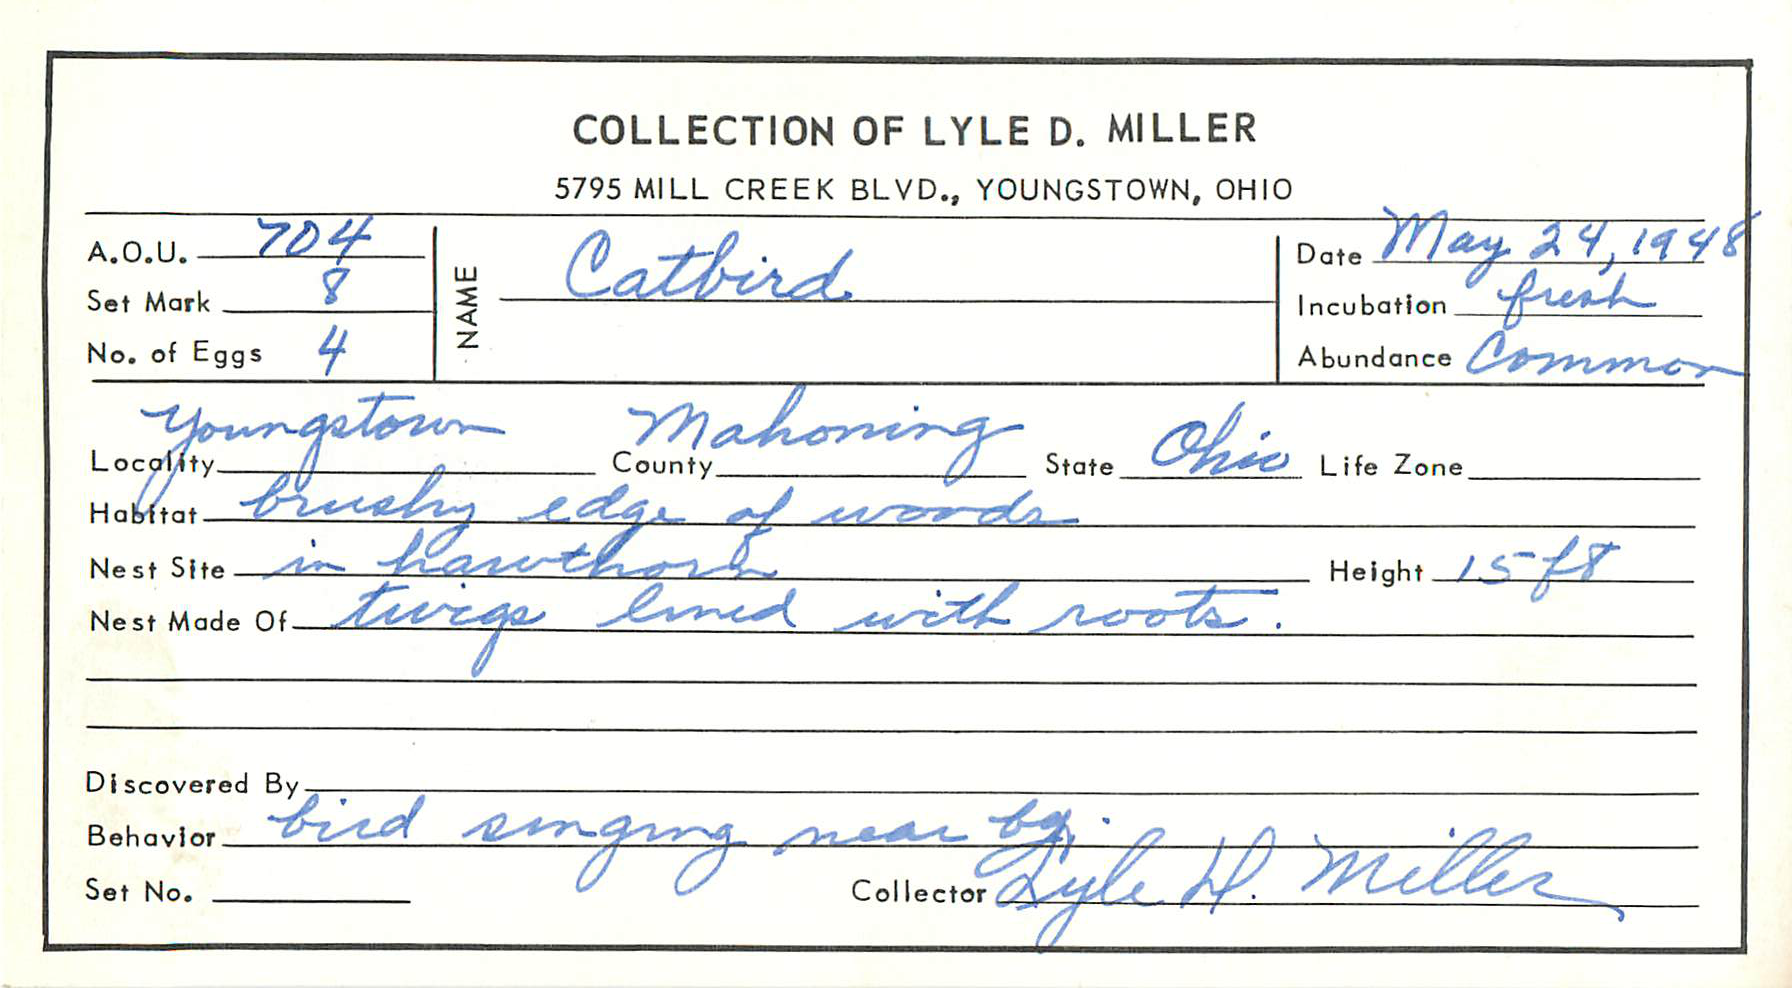 COLLECTION OF LYLE D. MILLER
5795 MILL CREEK BLVD., YOUNGSTOWN, OHIO
A.O.U. 704
Set Mark 8
No. of Eggs 4
NAME Catbird
Date May 24, 1948
Incubation fresh
Abundance Common
Locality Youngstown County Mahoning State Ohio Life Zone
Habitat brushy edge of woods
Nest Site in hawthorn Height 15 ft
Nest Made Of twigs lined with roots.
Discovered By
Behavior bird singing near by.
Set No. Collector Lyle D. Miller